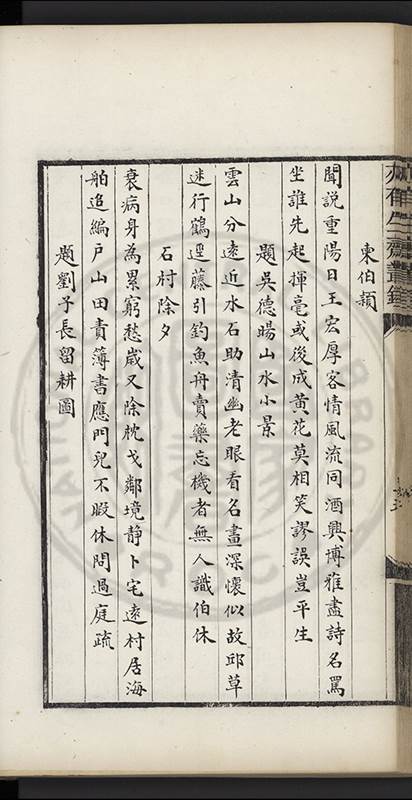 柬伯穎
聞説重陽日王宏厚客情風流同酒興博雅盡詩名罵
坐誰先起揮毫或後成黄花莫相笑謬誤豈平生
題吳德暘山水小景
雲山分遠近水石助清幽老眼看名畫深懷似故邱草
迷行鶴逕藤引釣魚舟賣藥忘機者無人識伯休
石村除夕
衰病身為累窮愁嵗又除枕戈鄰境静卜宅遠村居海
舶追編户山田責簿書應門兒不暇休問過庭疏
題劉子長留耕圖